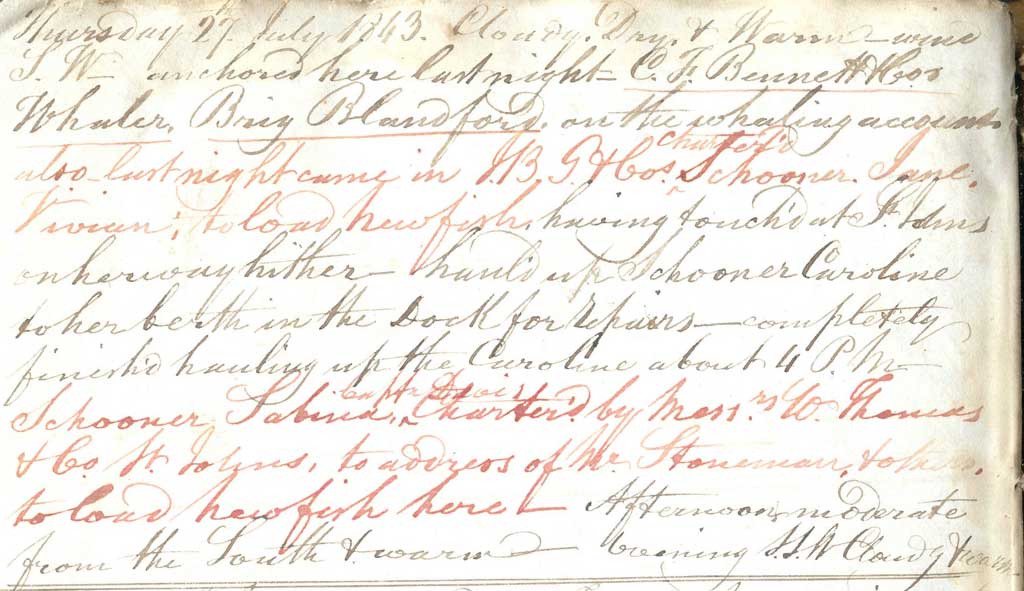 Thursday 27 July 1843. Cloudy. Dry. & Warm – wind
S. W – anchored here last night – C. F. Bennett & Cos
Whaler, Brig Blandford, on the whaling account
charter'd
also last night came in B. G. & Cos. Schooner. Jane.
Vivian; to load new fish, having touch'd at St. Johns
on her way hither – haul'd up Schooner Caroline
to her berth in the Dock for repairs – completely
finish'd hauling up the Caroline about 4 P. M –
Captn. Davis
Schooner Sabina, Charter'd by Messrs. W. Thomas
& Co. St. Johns, to address of Mr. Stoneman, & others,
to load new fish here – Afternoon, moderate
from the South & warm – evening S.S.W Cloudy & warm